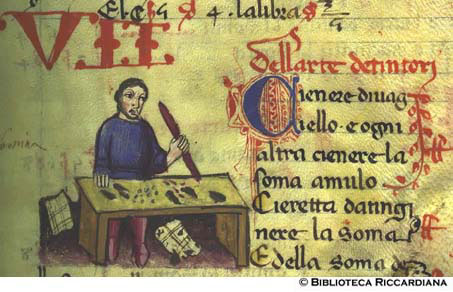 VII
Dell arte detintori
Cienere diuag
iello e ogni
altra cienere la
soma amulo
Cieretta datingi
nere la soma
E della soma de
© BIBLIOTECA RICCARDIANA